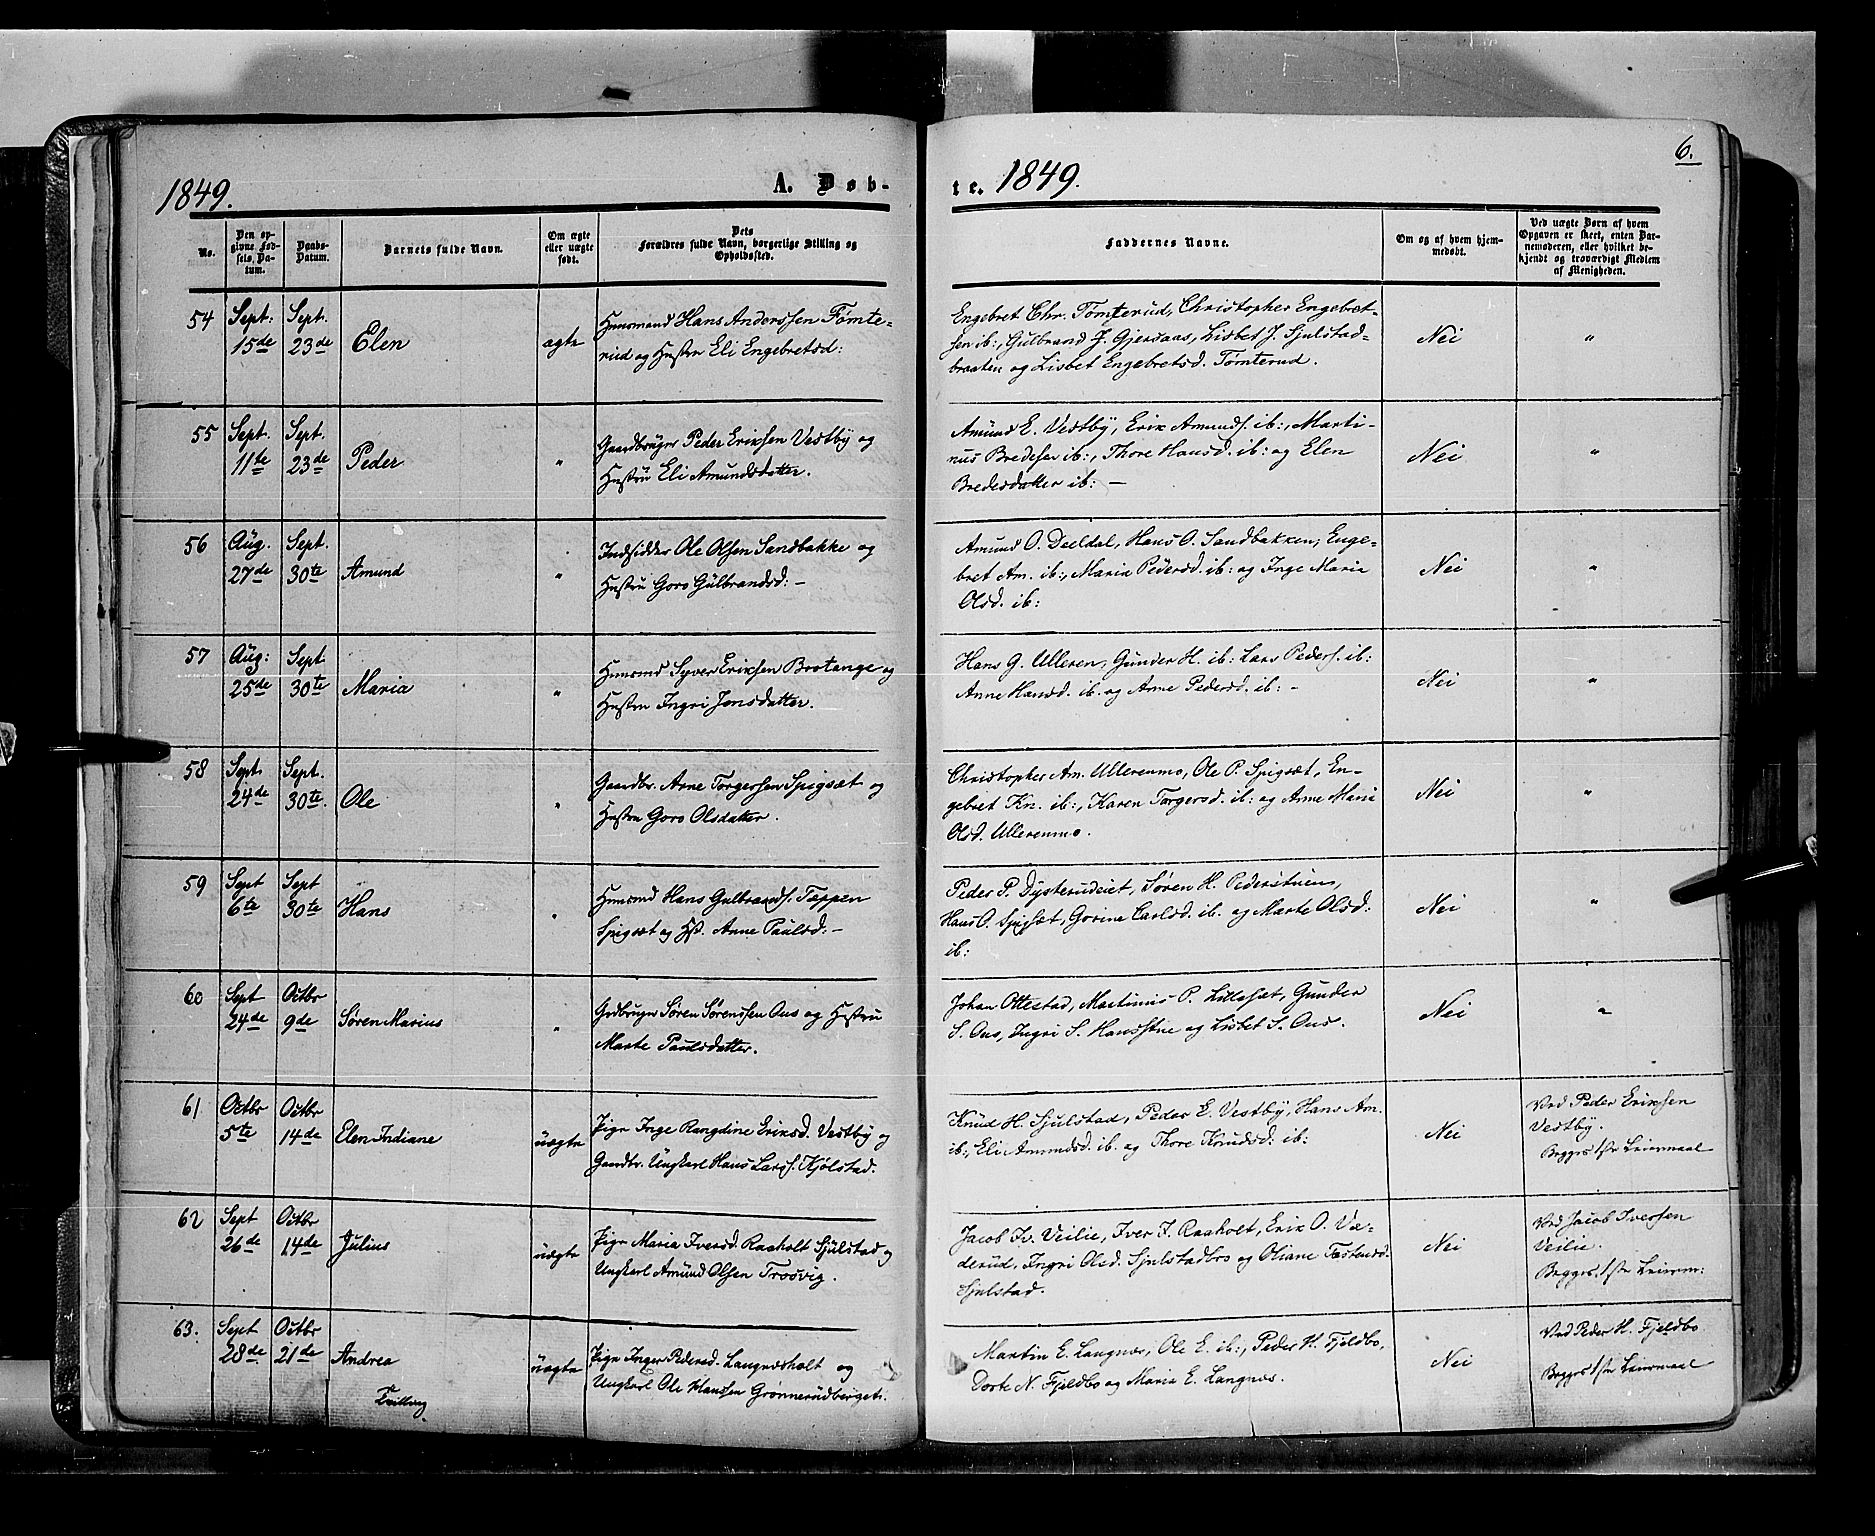 1849.
A. Døb-
No.
Den op-
givne Fød-
sels Da-
tum.
Daabs-
Datum.
Barnets fulde Navn.
Om ægte
eller uægte
født.
Dets
Forældres fulde Navn, borgerlige Stilling og
Opholdssted.
54
Sept.
15de
Sept.
23de
Elen
ægte
Huusmand Hans Anderssen Tømte-
rud og Hustru Eli Engebretsd:
55
Sept.
11te
Sept.
23de
Peder
"
Gaardbruger Peder Eriksen Vestby og
Hustru Eli Amundsdatter.
56
Aug.
27de
Sept.
30te
Amund
"
Indsidder Ole Olsen Sandbakke og
Hustru Goro Gulbrandsd: –
57
Aug:
25de
Sept.
30te
Maria
"
Huusmd Syver Eriksen Brotange og
Hustru Ingri Jonsdatter.
58
Sept.
24de
Sept.
30te.
Ole
"
Gaardbr. Arne Torgersen Spigsæt og
Hustru Goro Olsdatter.
59
Sept
6te
Sept
30te
Hans
"
Huusmd Hans Gulbrands. Tæppen
Spigsæt og Hst. Anne Paulsd: –
60
Sept
24de
Octbr
9de
Søren Marius
"
Grdbruger Søren Sørenssen Ous og Hustru
Marte Paulsdatter.
61
Octbr
5te
Octbr
14de
Elen Indiane
uægte
Pige Inge Rangdine Eriksd. Vestby og
Gaardbr. Ungkarl Hans Larss. Kjølstad.
62
Sept
26de
Octbr
14de
Julius
uægte
Pige Maria Iversd. Raaholt Sjulstad og
Ungkarl Amund Olsen Trosvig.
63.
Sept
28de
Octbr
21de
Andrea
Tvilling
uægte
Pige Inger Pedersd. Langnæsholt og
Ungkarl Ole Hanssen Grønnerudberget.
te. 1849.
6.
Faddernes Navne.
Om og af hvem hjem-
medøbt.
Ved uægte Børn af hvem
Opgaven er skeet, enten Bar-
nemoderen, eller hvilket be-
kjendt og troværdigt Medlem
af Menigheden.
Engebret Chr. Tømterud, Christopher Engebret-
sen ib:, Gulbrand J. Gjersaas, Lisbet J. Sjulstad-
braaten og Lisbet Engebretsd. Tømterud.
Nei
"
Amund E. Vestby, Erik Amunds. ib:, Marti-
nus Bredesen ib:, Thore Hansd. ib: og Elen
Bredesdatter ib: –
Nei
"
Amund O. Deeldal, Hans O. Sandbakken, Enge-
bret Am. ib:, Maria Pedersd. ib: og Inge Maria
Olsd. ib:
Nei
"
Hans G. Ulleren, Gunder H. ib: Lars Peders. ib:
Anne Hansd. ib. og Anne Pedersd. ib: –
Nei
"
Christopher Am. Ullerenmo, Ole P. Spigsæt, En-
gebret Kn. ib:, Karen Torgersd. ib: og Anne Mari
Olsd. Ullerenmo.
Nei
"
Peder P. Dysterudeiet, Søren H. Pederstuen,
Hans O. Spigsæt, Gorine Carlsd. ib. og Marte Olsd:
ib:
Nei
"
Johan Ottestad, Martinus P. Lillesæt, Gunder
S. Ous, Ingri S. Hansstue og Lisbet S. Ous.
Nei
"
Knud H. Sjulstad, Peder E. Vestby, Hans Am.
ib:, Eli Amundsd. ib. og Thore Knudsd. ib:
Nei
Ved Peder Eriksen
Vestby.
Begges 1ste Leiermaal
Jacob Iv. Veilie, Iver J. Raaholt, Erik O. Væ-
derud, Ingri Olsd. Sjulstadbro og Oliane Tostensd.
Sjulstad.
Nei
Ved Jacob Iversen
Veilie.
Begges 1ste Leierm:
Martin E. Langnæs, Ole E. ib:, Peder H. Fjeldbo,
Dorte N. Fjeldbo og Maria E. Langnæs.
Nei
Ved Peder H. Fjeldbo
Begges 1ste Leiermaal